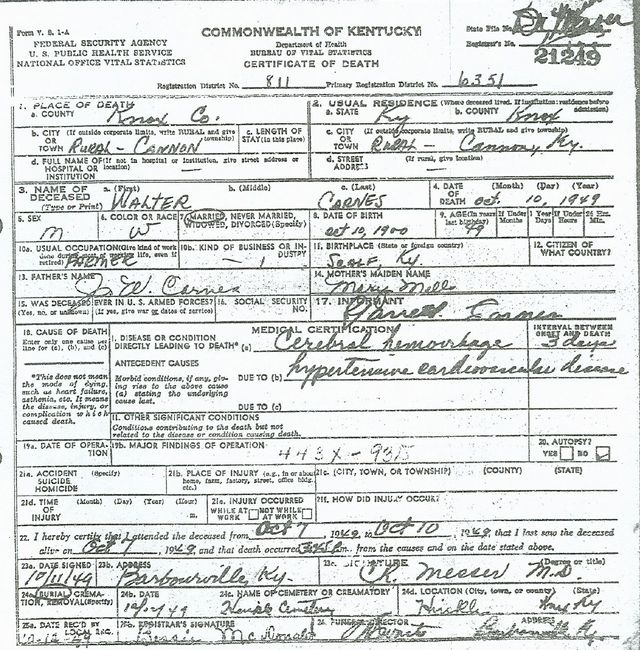 Form V. S. 1-A
COMMONWEALTH OF KENTUCKY
FEDERAL SECURITY AGENCY
U. S. PUBLIC HEALTH SERVICE
NATIONAL OFFICE VITAL STATISTICS
Department of Health
BUREAU OF VITAL STATISTICS
CERTIFICATE OF DEATH
State File No.
Registrar's No.
21249
Registration District No. 811 Primary Registration District No. 6351
1. PLACE OF DEATH
a. COUNTY Knox Co.
2. USUAL RESIDENCE (Where deceased lived. If institution: residence before admission)
a. STATE Ky b. COUNTY Knox
b. CITY (If outside corporate limits, write RURAL and give township)
OR TOWN RURAL - CANNON
c. LENGTH OF STAY (in this place)
c. CITY (If outside corporate limits, write RURAL and give township)
OR TOWN RURAL - Cannon, Ky.
d. FULL NAME OF (If not in hospital or institution, give street address or location)
HOSPITAL OR INSTITUTION
d. STREET ADDRESS (If rural, give location)
3. NAME OF DECEASED (Type or Print)
a. (First) WALTER
b. (Middle)
c. (Last) CARNES
4. DATE OF DEATH (Month) (Day) (Year)
Oct. 10, 1949
5. SEX M
6. COLOR OR RACE W
7. MARRIED, NEVER MARRIED, WIDOWED, DIVORCED (Specify)
8. DATE OF BIRTH
Oct 10, 1900
9. AGE (In years last birthday) 49
If Under 1 Year Months Days
If Under 24 Hrs. Hours Min.
10a. USUAL OCCUPATION (Give kind of work done during most of working life, even if retired) FARMER
10b. KIND OF BUSINESS OR INDUSTRY
11. BIRTHPLACE (State or foreign country)
Scalf, Ky.
12. CITIZEN OF WHAT COUNTRY?
13. FATHER'S NAME
J. W. Carnes
14. MOTHER'S MAIDEN NAME
Mary Mills
15. WAS DECEASED EVER IN U.S. ARMED FORCES?
(Yes, no, or unknown) (If yes, give war or dates of service)
16. SOCIAL SECURITY NO.
17. INFORMANT
Garrett Carnes
18. CAUSE OF DEATH
Enter only one cause per line for (a), (b), and (c)
MEDICAL CERTIFICATION
INTERVAL BETWEEN ONSET AND DEATH
I. DISEASE OR CONDITION
DIRECTLY LEADING TO DEATH* (a) Cerebral hemorrhage 3 days
*This does not mean the mode of dying, such as heart failure, asthenia, etc. It means the disease, injury, or complication which caused death.
ANTECEDENT CAUSES
Morbid conditions, if any, giving rise to the above cause (a) stating the underlying cause last.
DUE TO (b) hypertensive cardiovascular disease
DUE TO (c)
II. OTHER SIGNIFICANT CONDITIONS
Conditions contributing to the death but not related to the disease or condition causing death.
19a. DATE OF OPERATION
19b. MAJOR FINDINGS OF OPERATION
443X
20. AUTOPSY?
YES NO
21a. ACCIDENT SUICIDE HOMICIDE
21b. PLACE OF INJURY (e.g., in or about home, farm, factory, street, office bldg., etc.)
21c. (CITY, TOWN, OR TOWNSHIP) (COUNTY) (STATE)
21d. TIME OF INJURY (Month) (Day) (Year) (Hour) m.
21e. INJURY OCCURRED
WHILE AT WORK NOT WHILE AT WORK
21f. HOW DID INJURY OCCUR?
22. I hereby certify that I attended the deceased from Oct 7, 1949, to Oct 10, 1949, that I last saw the deceased
alive on Oct 7, 1949, and that death occurred m., from the causes and on the date stated above.
23a. DATE SIGNED
10/11/49
23b. ADDRESS
Barbourville, Ky.
23c. SIGNATURE (Degree or title)
Messer M.D.
24a. BURIAL, CREMATION, REMOVAL (Specify)
24b. DATE
24c. NAME OF CEMETERY OR CREMATORY
Cemetery
24d. LOCATION (City, town, or county) (State)
Hinkle, Knox Ky
25a. DATE REC'D BY LOCAL REG.
25b. REGISTRAR'S SIGNATURE
Bessie McDonald
26. FUNERAL DIRECTOR
ADDRESS
Barbourville Ky